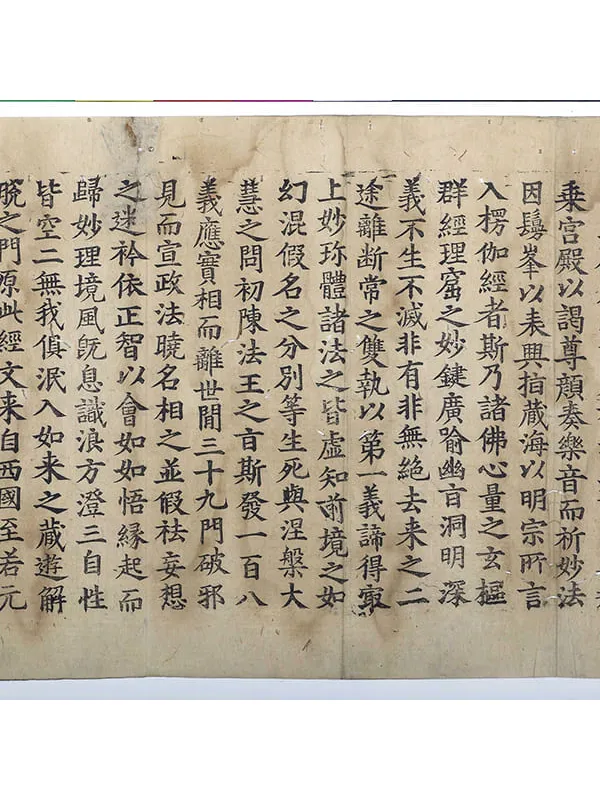 乘宮殿以謁尊顏奏樂音而祈妙法
因鬘峯以表興指藏海以明宗所言
入楞伽經者斯乃諸佛心量之玄樞
群經理窟之妙鍵廣喻幽旨洞明深
義不生不滅非有非無絶去来之二
途離斷常之雙執以第一義諦得冣
上妙珎體諸法之皆虛知前境之如
幻混假名之分別等生死與涅槃大
慧之問初陳法王之旨斯發一百八
義應寶相而離世間三十九門破邪
見而宣政法曉名相之並假袪妄想
之迷衿依正智以會如如悟緣起而
歸妙理境風旣息識浪方澄三自性
皆空二無我俱泯入如来之藏遊解
脫之門原此經文来自西國至若元